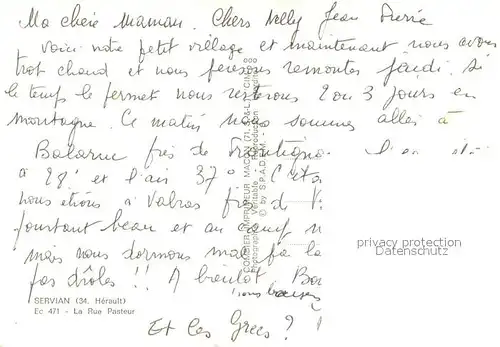 Ma chère Maman. Chers Nelly Jean Pierre
Voici notre petit village et maintenant nous avons
trop chaud et nous pensons remonter jeudi. si
le temps le permet nous resterons 2 ou 3 jours en
montagne. Ce matin nous sommes allés à
Balaruc près de Frontigna
à 28° et l'air 37°
nous étions à Valras près de
pourtant beau et au camp
mais nous dormons mal
pas drôles !! A bientôt
nous baisers
Et les Grecs ?
COMBIER IMPRIMEUR MACON (71, S.&-L.) "CIM"
Photographie Véritable - Reproduction
© by S.P.A.D.E.M.
privacy protection
Datenschutz
SERVIAN (34. Hérault)
Ec 471 - La Rue Pasteur